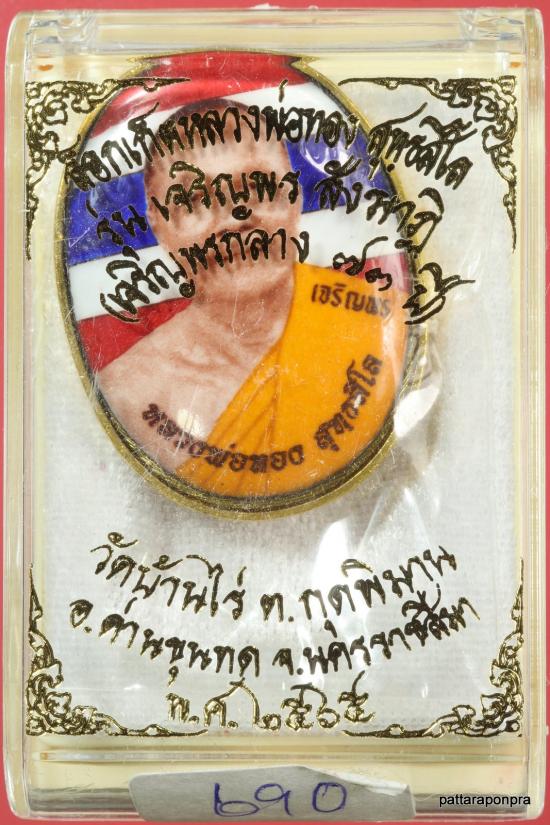 ลอกเก็ตหลวงพ่อทอง สุทธสีโล
รุ่น เจริญพร
(เจริญพรกลาง ๗๓ ปี)
เจริญพร
หลวงพ่อทอง สุทธสีโล
วัดบ้านไร่ ต.กุดพิมาน
อ.ด่านขุนทด จ.นครราชสีมา
พ.ศ. ๒๕๖๕
690
pattaraponpra